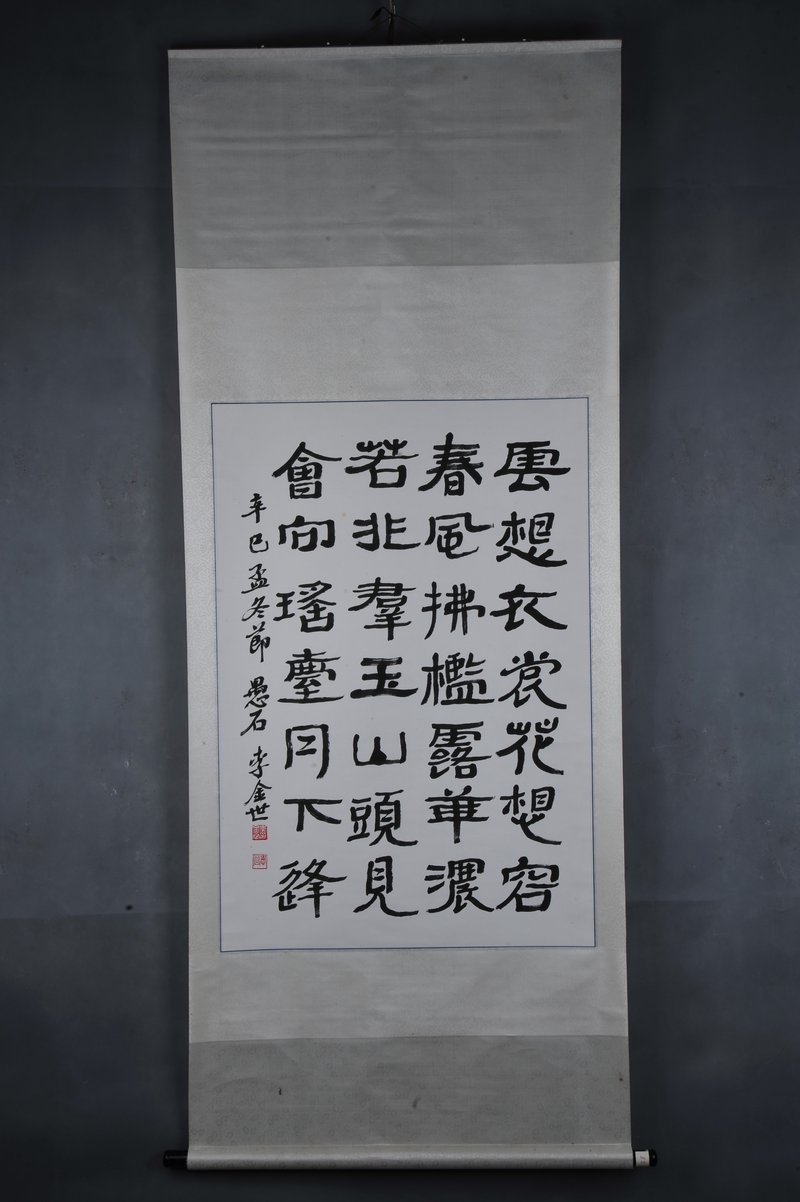 雲想衣裳花想容
春風拂檻露華濃
若非羣玉山頭見
會向瑤臺月下逢
辛巳孟冬節 愚石 李金世